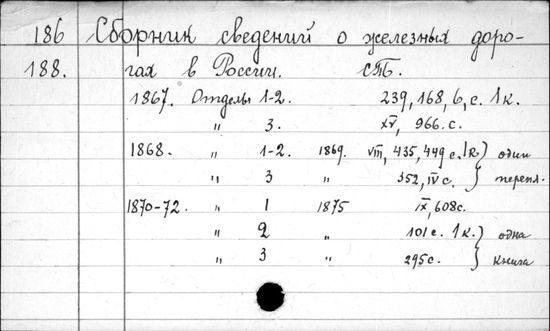 186 Сборник сведений о железных доро-
188. гах в России. СПб.
1867. Отделы 1-2. 239, 168, 6, с. 1 к.
" 3. XV, 966. с.
1868. " 1-2. 1869. VIII, 435, 449 с. 1 к.) один
" 3 " 352, IV с. } перепл.
1870-72. " 1 1875 IX, 608 с.
" 2 " 101 с. 1 к.) одна
" 3 " 295 с. } книга